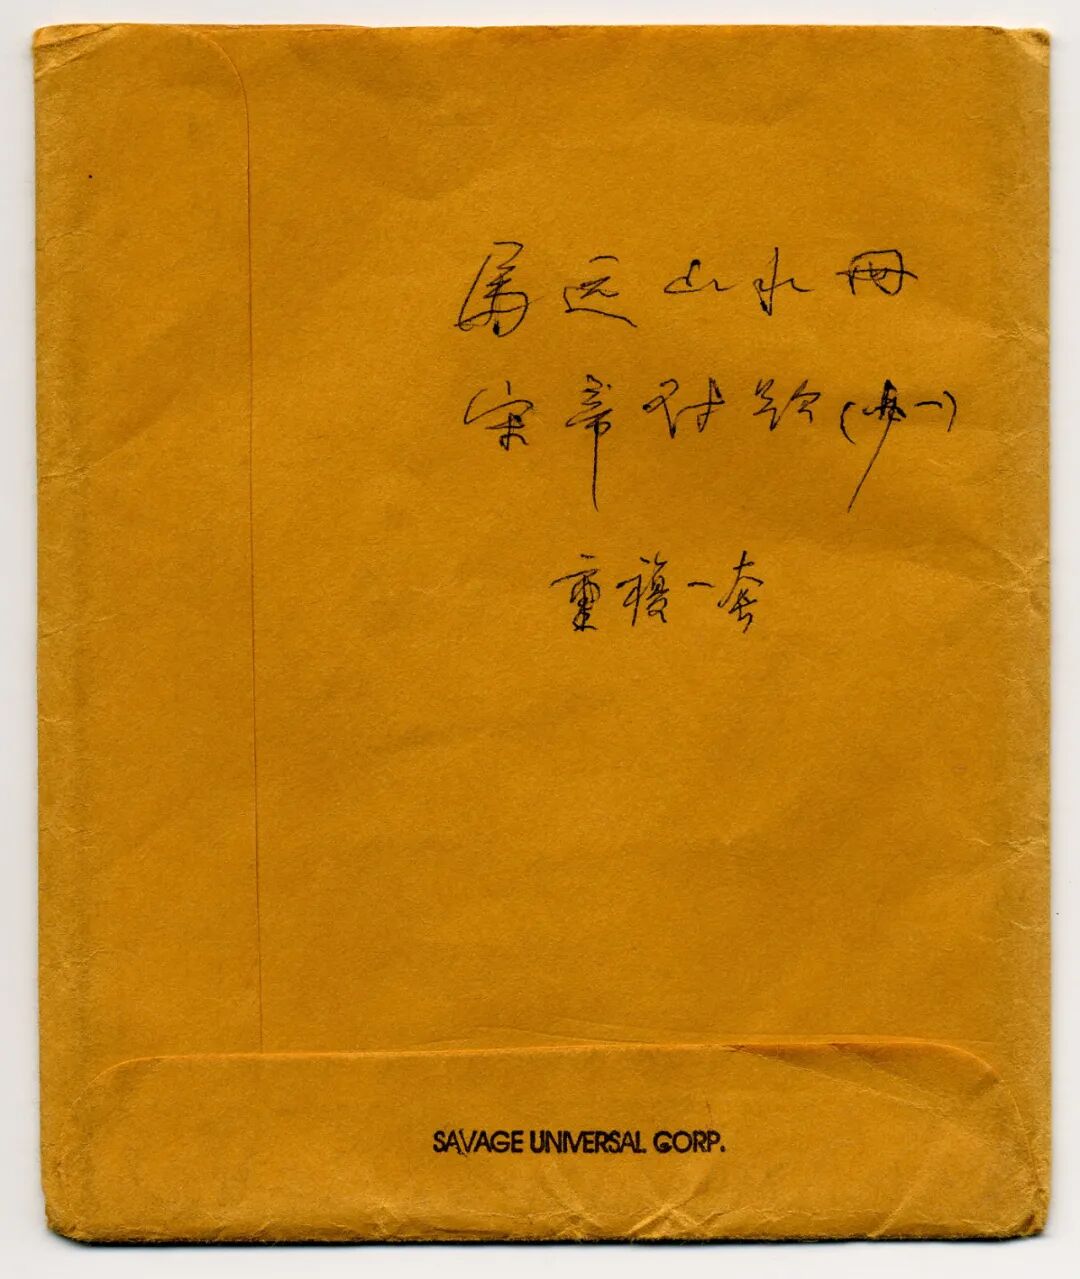 馬远山水冊
宋帝对题(一)
重複一套
SAVAGE UNIVERSAL CORP.